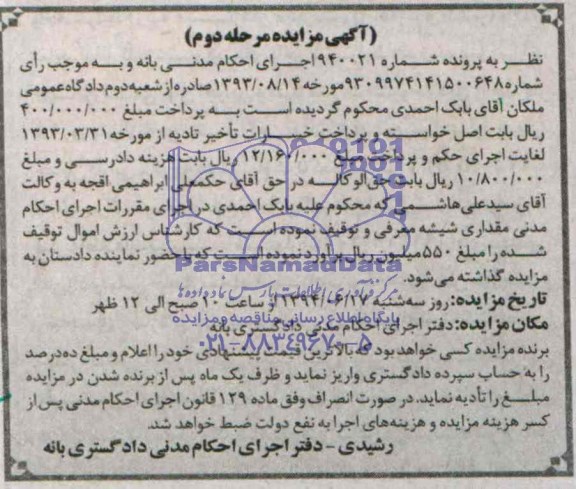 (آگهی مزایده مرحله دوم)
نظر به پرونده شماره ۹۴۰۰۲۱ اجرای احکام مدنی بانه و به موجب رأی
شماره ۹۳۰۹۹۷۴۱۴۱۵۰۰۶۴۸ مورخه ۱۳۹۳/۰۸/۱۴ صادره از شعبه دوم دادگاه عمومی
ملکان آقای بابک احمدی محکوم گردیده است به پرداخت مبلغ ۴۰۰/۰۰۰/۰۰۰
ریال بابت اصل خواسته و پرداخت خسارات تأخیر تادیه از مورخه ۱۳۹۳/۰۳/۳۱
لغایت اجرای حکم و پرداخت مبلغ ۱۲/۱۶۰/۰۰۰ ریال بابت هزینه دادرسی و مبلغ
۱۰/۸۰۰/۰۰۰ ریال بابت حق‌الوکاله در حق آقای حکمعلی ابراهیمی اقجه به وکالت
آقای سیدعلی هاشمی که محکوم علیه بابک احمدی در اجرای مقررات اجرای احکام
مدنی مقداری شیشه معرفی و توقیف نموده است که کارشناس ارزش اموال توقیف
شده را مبلغ ۵۵۰ میلیون ریال برآورد نموده است که با حضور نماینده دادستان به
مزایده گذاشته می‌شود.
ParsNamadData
مرکز فرآوری اطلاعات پارس نماد داده‌ها
تاریخ مزایده: روز سه‌شنبه ۱۳۹۴/۰۶/۱۷ از ساعت ۱۰ صبح الی ۱۲ ظهر
پایگاه اطلاع رسانی مناقصه و مزایده
مکان مزایده: دفتر اجرای احکام مدنی دادگستری بانه
۰۲۱-۸۸۳۴۹۶۷۰-۵
برنده مزایده کسی خواهد بود که بالاترین قیمت پیشنهادی خود را اعلام و مبلغ ده درصد
را به حساب سپرده دادگستری واریز نماید و ظرف یک ماه پس از برنده شدن در مزایده
مبلغ را تأدیه نماید. در صورت انصراف وفق ماده ۱۲۹ قانون اجرای احکام مدنی پس از
کسر هزینه مزایده و هزینه‌های اجرا به نفع دولت ضبط خواهد شد.
رشیدی - دفتر اجرای احکام مدنی دادگستری بانه